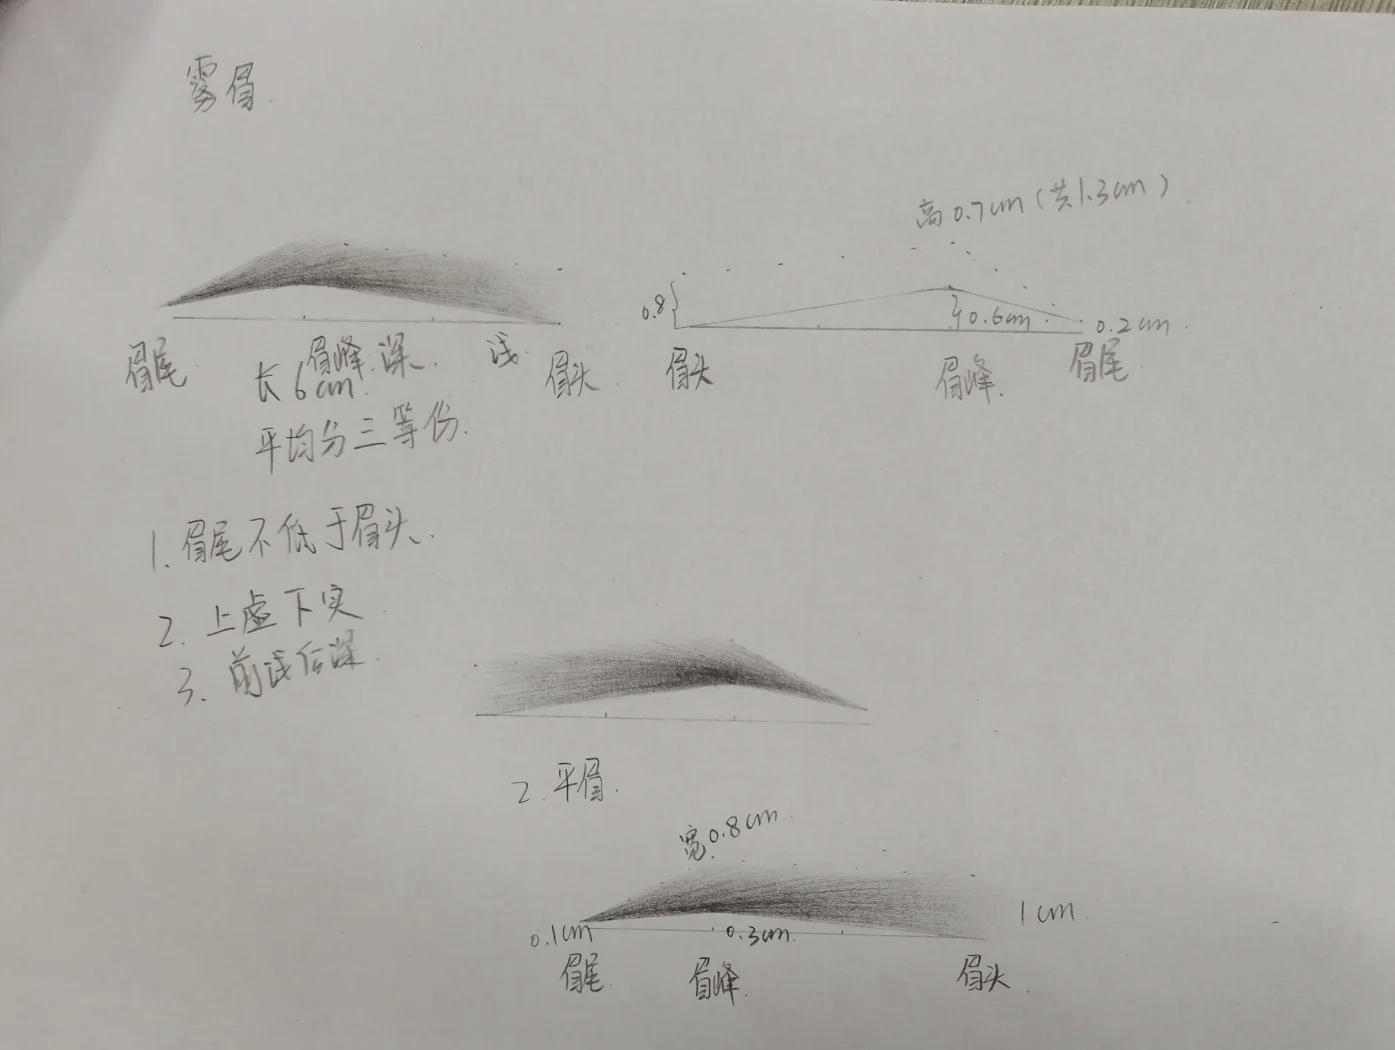 雾眉.
高0.7cm(共1.3cm).
0.8
0.6cm
0.2cm.
眉尾. 眉峰.深. 浅. 眉头.
眉头 眉峰. 眉尾.
长6cm.
平均分三等份.
1.眉尾不低于眉头.
2.上虚下实
3.前浅后深.
2.平眉.
宽0.8cm.
1cm.
0.1cm
0.3cm.
眉尾. 眉峰. 眉头.